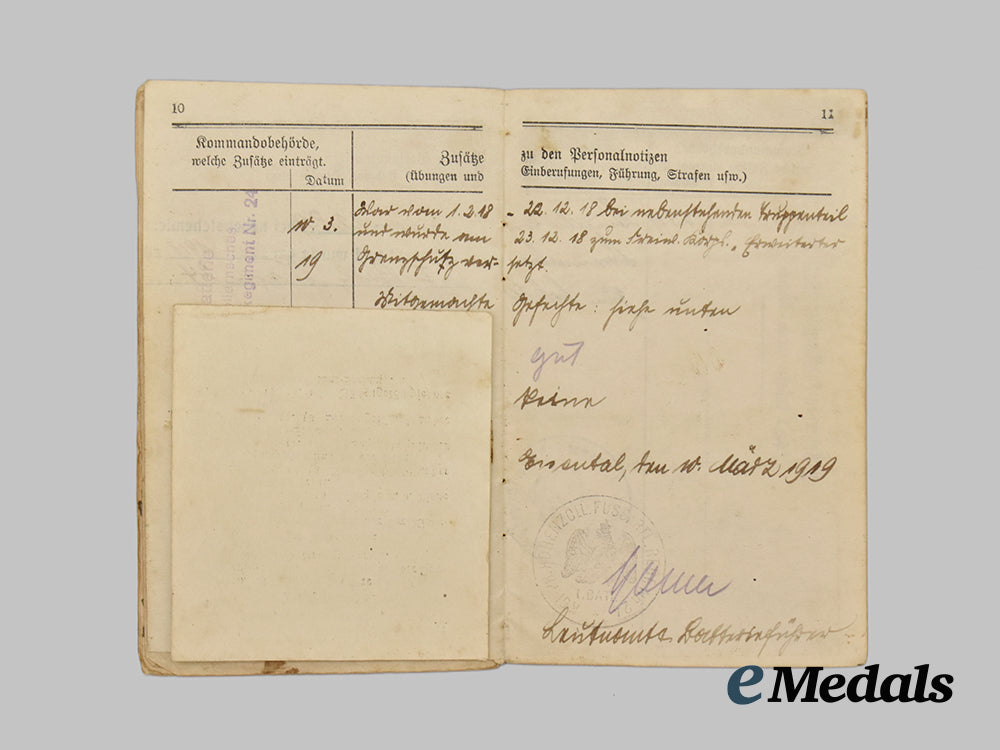 10
Kommandobehörde,
welche Zusätze einträgt.
Datum
Zusätze
(Übungen und
11
zu den Personalnotizen
Einberufungen, Führung, Strafen usw.)
Regiment Nr. 24
10. 3.
19
War vom 1.2.18 - 22.12.18 bei nebenstehenden Truppenteil
und wurde am 23.12.18 zum Freiw. Korps „Erweiterter
Grenzschutz ver- setzt.
Mitgemachte Gefechte: siehe unten
gut
keine
den 10. März 1919
HOHENZOLL. FUSS
Leutnant Batterieführer
eMedals